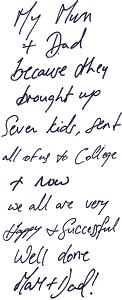 My Mum
+ Dad
because they
brought up
Seven kids, sent
all of us to College
+ now
we all are very
Happy + Successful
Well done
Mam + Dad!